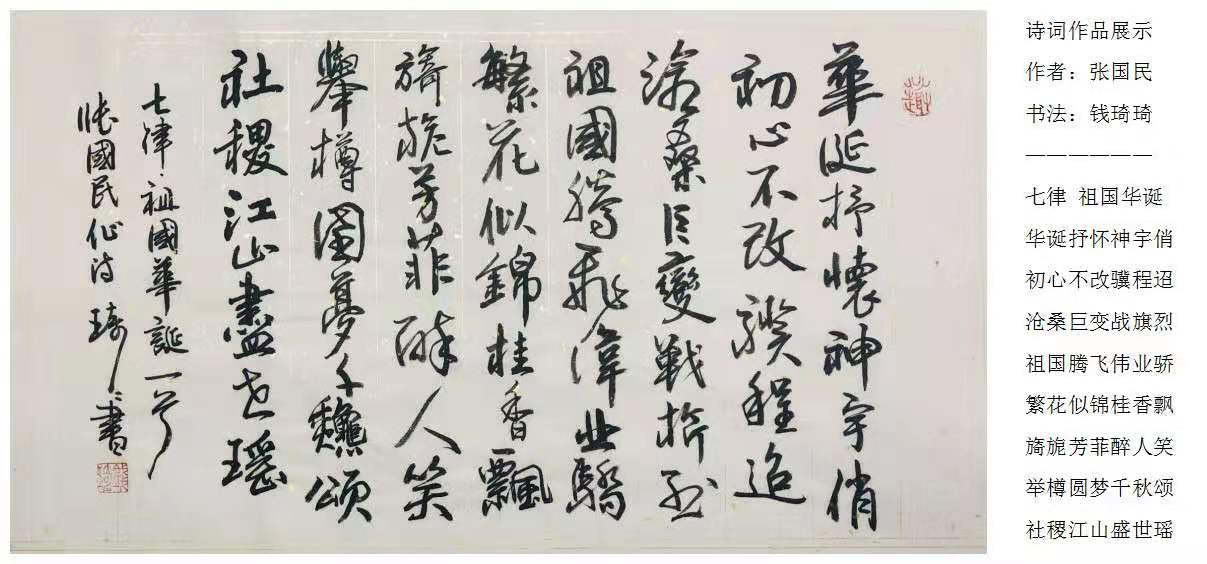 華誕抒懷神宇俏
初心不改驥程迢
滄桑巨變戰旂烈
祖國騰飛偉業驕
繁花似錦桂香飄
旖旎芳菲醉人笑
舉樽圓夢千龝頌
社稷江山盡世瑤
七律·祖國華誕一首
張國民作詩 琦琦書
诗词作品展示
作者：张国民
书法：钱琦琦
——————
七律 祖国华诞
华诞抒怀神宇俏
初心不改骥程迢
沧桑巨变战旗烈
祖国腾飞伟业骄
繁花似锦桂香飘
旖旎芳菲醉人笑
举樽圆梦千秋颂
社稷江山盛世瑶